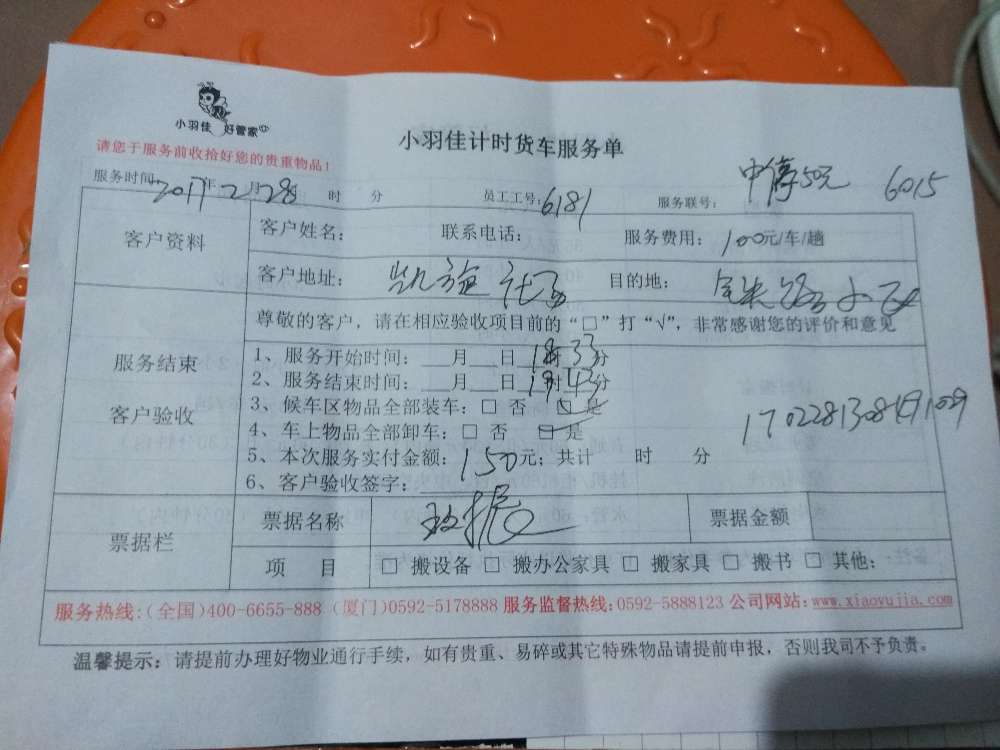 小羽佳 好管家
小羽佳计时货车服务单
请您于服务前收拾好您的贵重物品！
服务时间 2017年2月28 时 分 员工工号:6181 服务联号: 中停50元 6015
客户资料 客户姓名: 联系电话: 服务费用: 100元/车/趟
客户地址: 凯旋 目的地:
尊敬的客户，请在相应验收项目前的“□”打“√”，非常感谢您的评价和意见
服务结束
客户验收
1、服务开始时间: 月 日 18 33分
2、服务结束时间: 月 日 19时43分
3、候车区物品全部装车: □ 否 □ 是
4、车上物品全部卸车: □ 否 □ 是
5、本次服务实付金额: 150元; 共计 时 分
6、客户验收签字:
票据栏 票据名称 票据金额
项 目 □ 搬设备 □ 搬办公家具 □ 搬家具 □ 搬书 □ 其他:
服务热线:(全国)400-6655-888 (厦门)0592-5178888 服务监督热线:0592-5888123 公司网站:www.xiaoyujia.com
温馨提示: 请提前办理好物业通行手续，如有贵重、易碎或其它特殊物品请提前申报，否则我司不予负责。